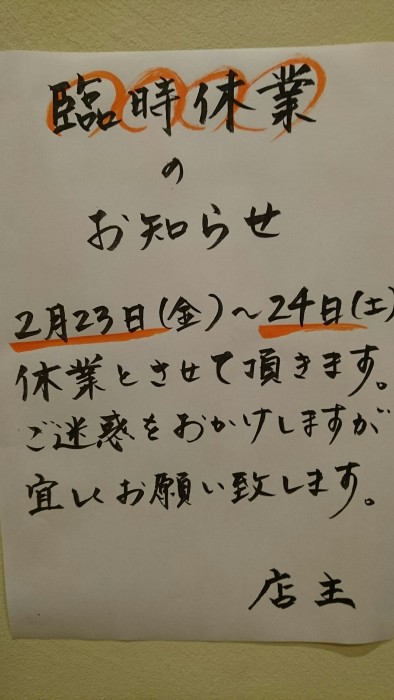 臨時休業
の
お知らせ
2月23日(金)〜24日(土)
休業とさせて頂きます。
ご迷惑をおかけしますが
宜しくお願い致します。
店主